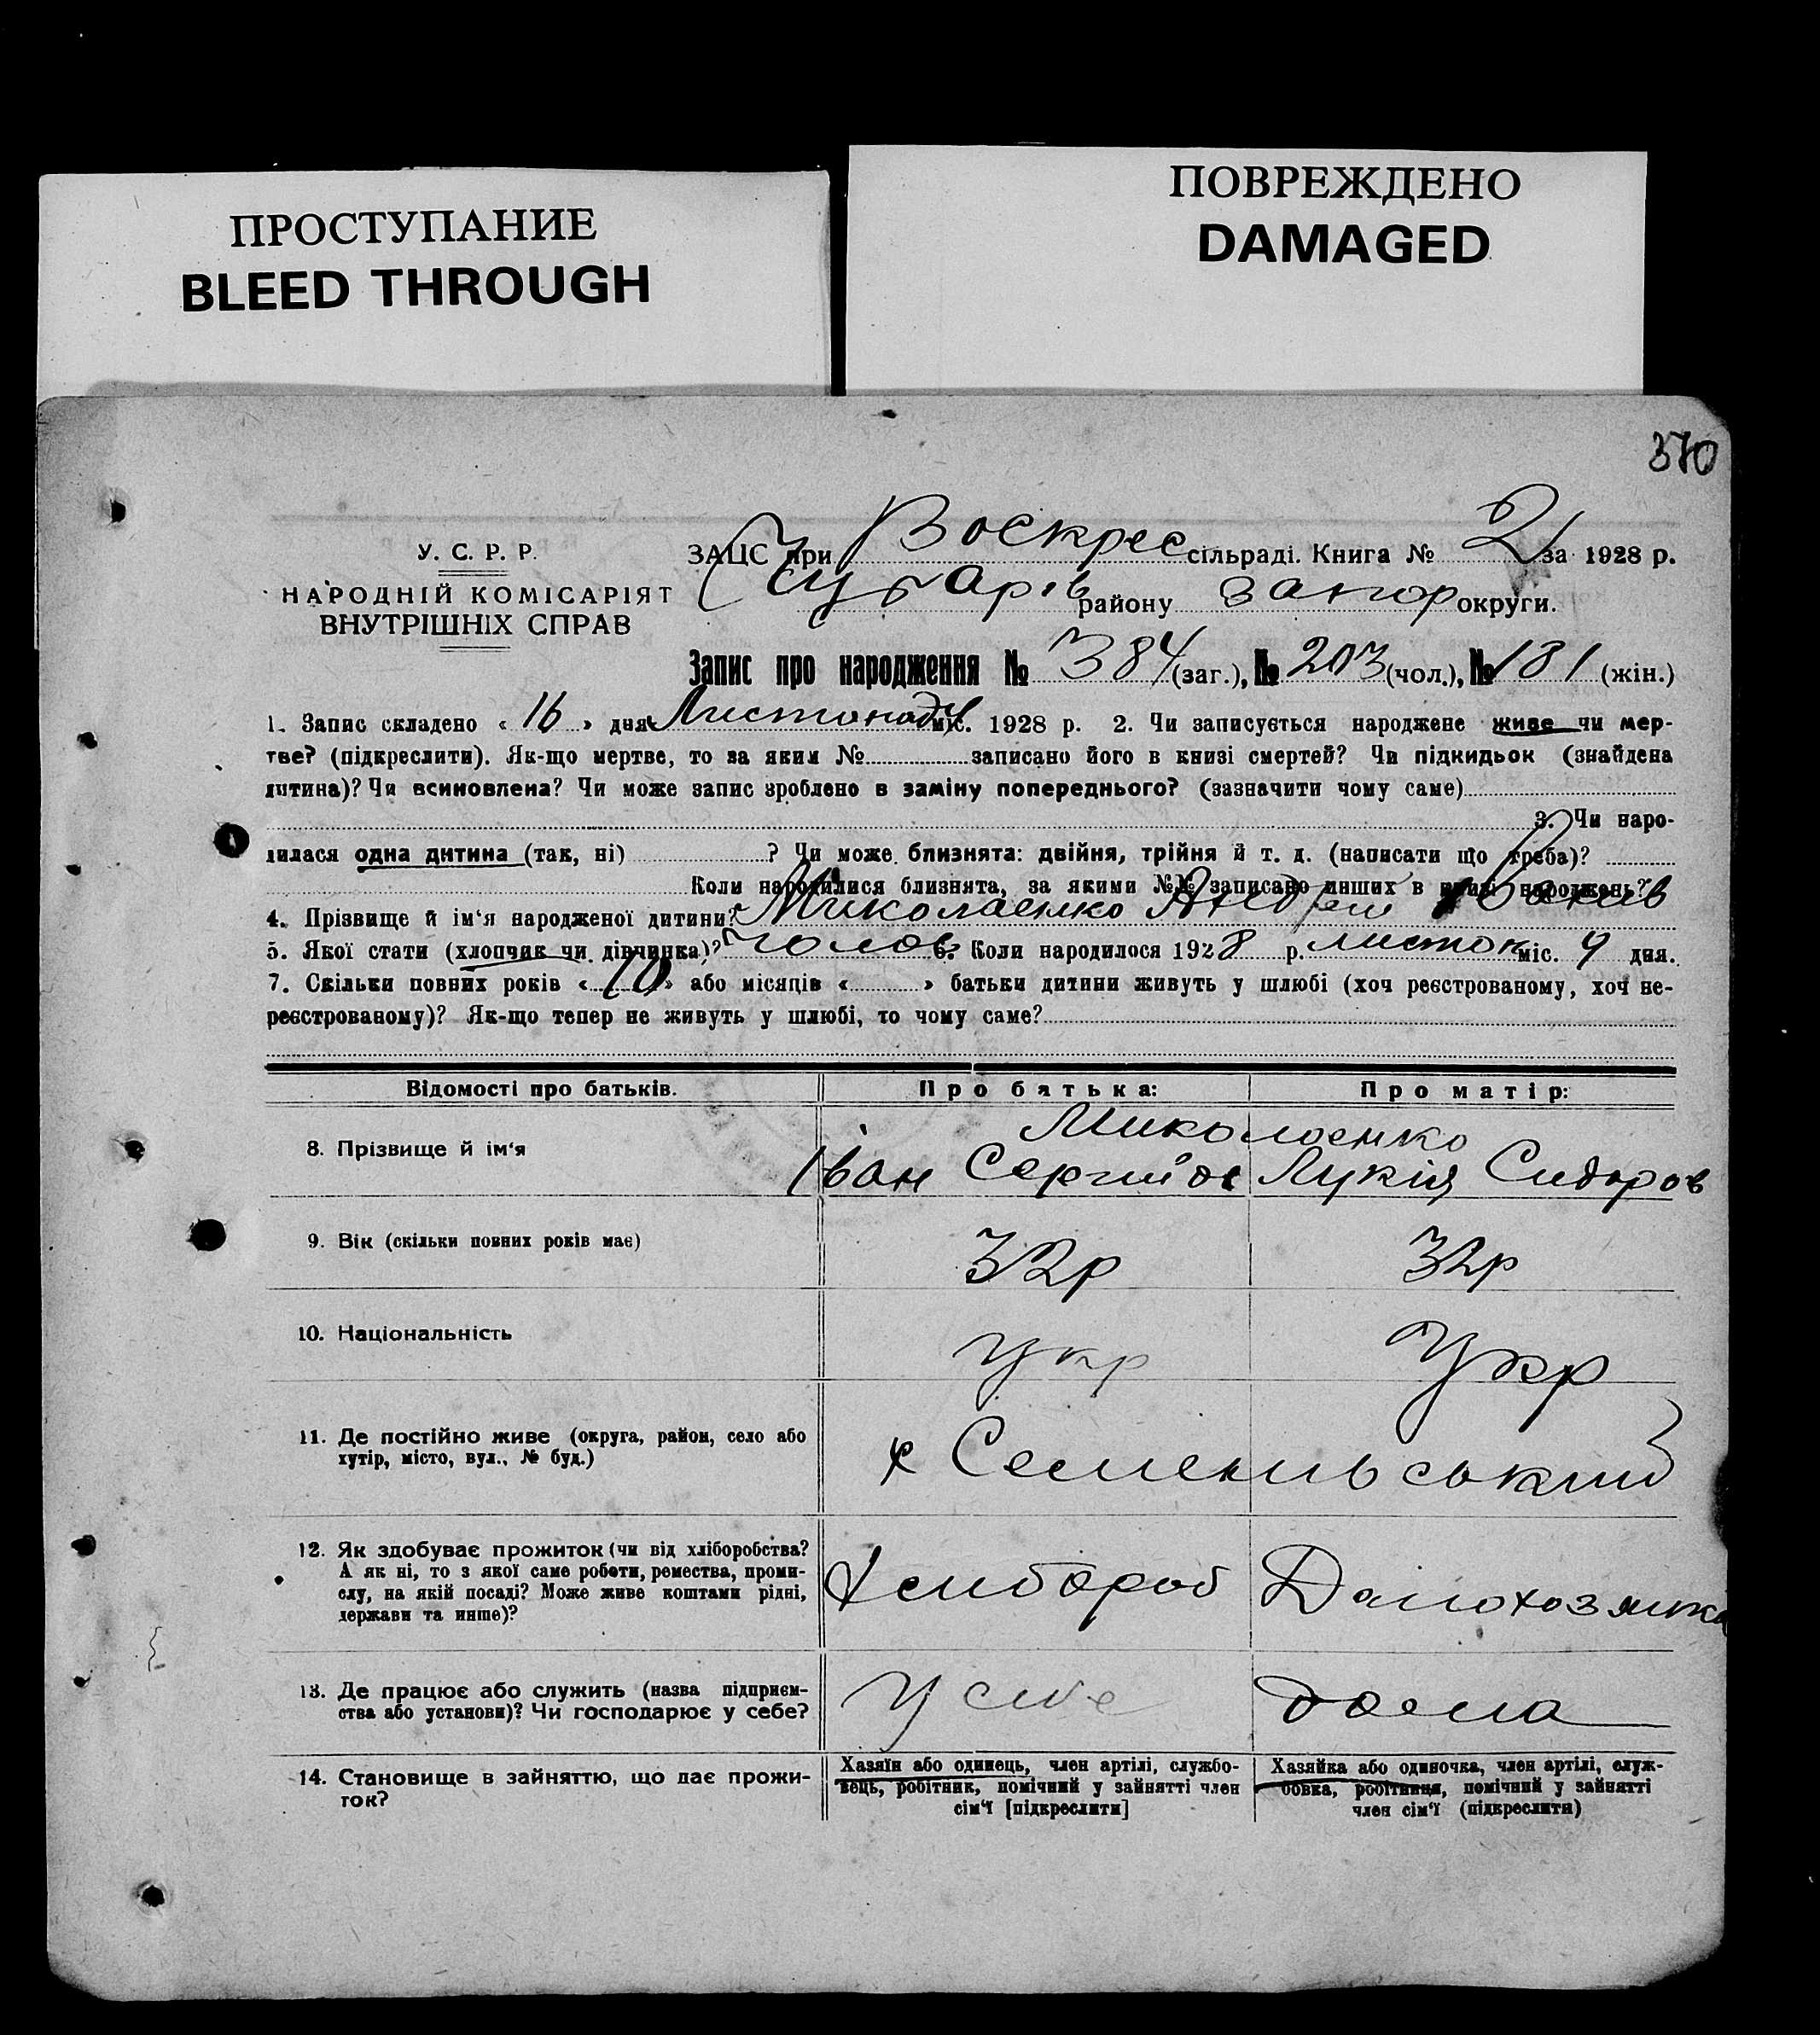 ПРОСТУПАНИЕ
BLEED THROUGH
ПОВРЕЖДЕНО
DAMAGED
370
У. С. Р. Р.
НАРОДНІЙ КОМІСАРІЯТ
ВНУТРІШНІХ СПРАВ
ЗАЦС при Воскрес сільраді. Книга № 2 за 1928 р.
Чубарів району Запор округи.
Запис про народження № 384 (заг.), № 203 (чол.), № 181 (жін.)
1. Запис складено « 16 » дня Листопаду міс. 1928 р. 2. Чи записується народжене живе чи мер-
тве? (підкреслити). Як-що мертве, то за яким № записано його в книзі смертей? Чи підкидьок (знайдена
дитина)? Чи всиновлена? Чи може запис зроблено в заміну попереднього? (зазначити чому саме)
3. Чи наро-
дилася одна дитина (так, ні) ? Чи може близнята: двійня, трійня й т. д. (написати що треба)?
Коли народилися близнята, за якими №№ записано инших в книзі народжень?
4. Прізвище й ім‘я народженої дитини? Миколаенко Андрей Іванів
5. Якої стати (хлопчик чи дівчинка)? чолов 6. Коли народилося 1928 р. листоп міс. 9 дня.
7. Скільки повних років « 10 » або місяців « » батьки дитини живуть у шлюбі (хоч реєстрованому, хоч не-
реєстрованому)? Як-що тепер не живуть у шлюбі, то чому саме?
Відомості про батьків. Про батька: Про матір:
8. Прізвище й ім‘я Миколаенко
Іван Сергийов Лукія Сидоров
9. Вік (скільки повних років має) 32р 32р
10. Національність Укр Укр
11. Де постійно живе (округа, район, село або
хутір, місто, вул., № буд.)
х Семенивський
12. Як здобуває прожиток (чи від хліборобства?
А як ні, то з якої саме роботи, ремества, проми-
слу, на якій посаді? Може живе коштами рідні,
держави та инше)?
Хлибороб Домохозяйка
13. Де працює або служить (назва підприєм-
ства або установи)? Чи господарює у себе?
У себе дома
14. Становище в зайняттю, що дає прожи-
ток?
Хазяїн або одинець, член артілі, службо-
вець, робітник, помічний у зайнятті член
сім‘ї [підкреслити]
Хазяйка або одиночка, член артілі, служ-
бовка, робітниця, помічний у зайнятті
член сім‘ї (підкреслити)